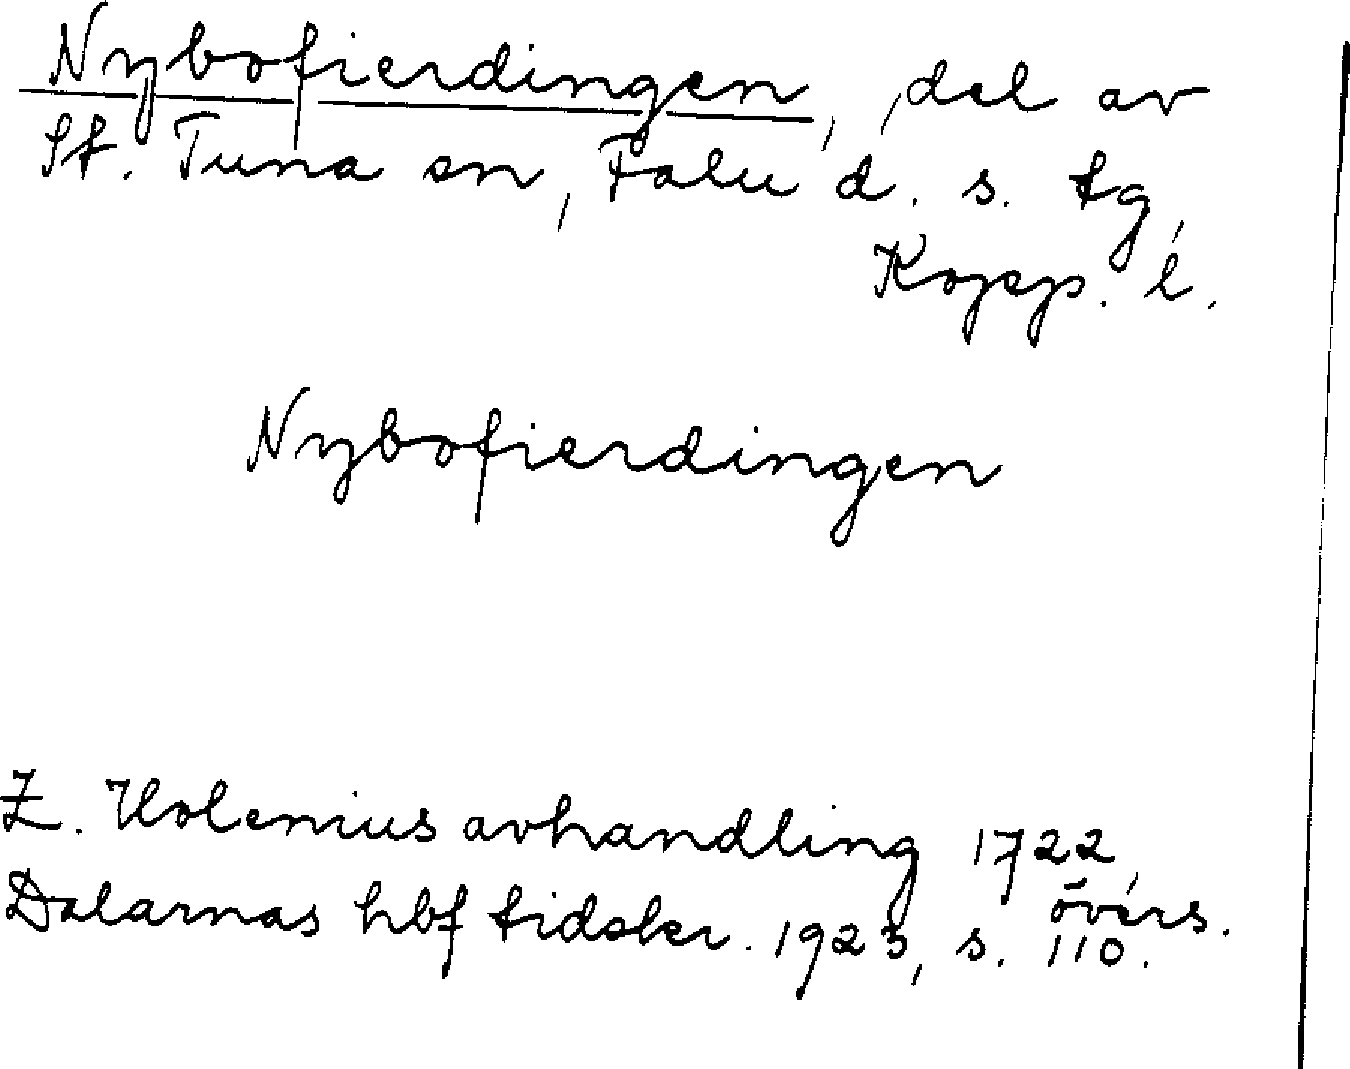 Nybofierdingen, del av
St. Tuna sn, Falu d. s. tg,
Kopp. l.
Nybofierdingen
Z. Holenius avhandling 1722,
övers.
Dalarnas hbf tidskr. 1923, s. 110.